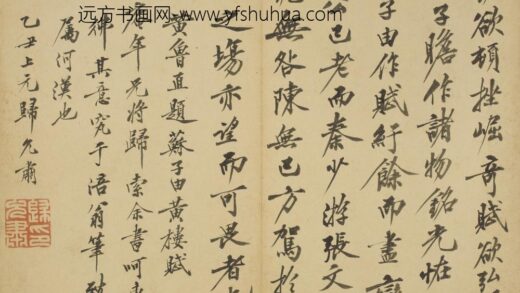 远方书画网-www.yfshuhua.com
欲頓挫崛奇賦欲弘
子瞻作諸物銘光怪
子由作賦紆餘而盡變
公已老而秦少游張文
无咎陳無己方駕於
之場亦望而可畏者
黃魯直題蘇子由黃樓賦
唐年兄將歸索余書呵
師其意究于涪翁筆
屬河漢也
乙丑上元歸允肅